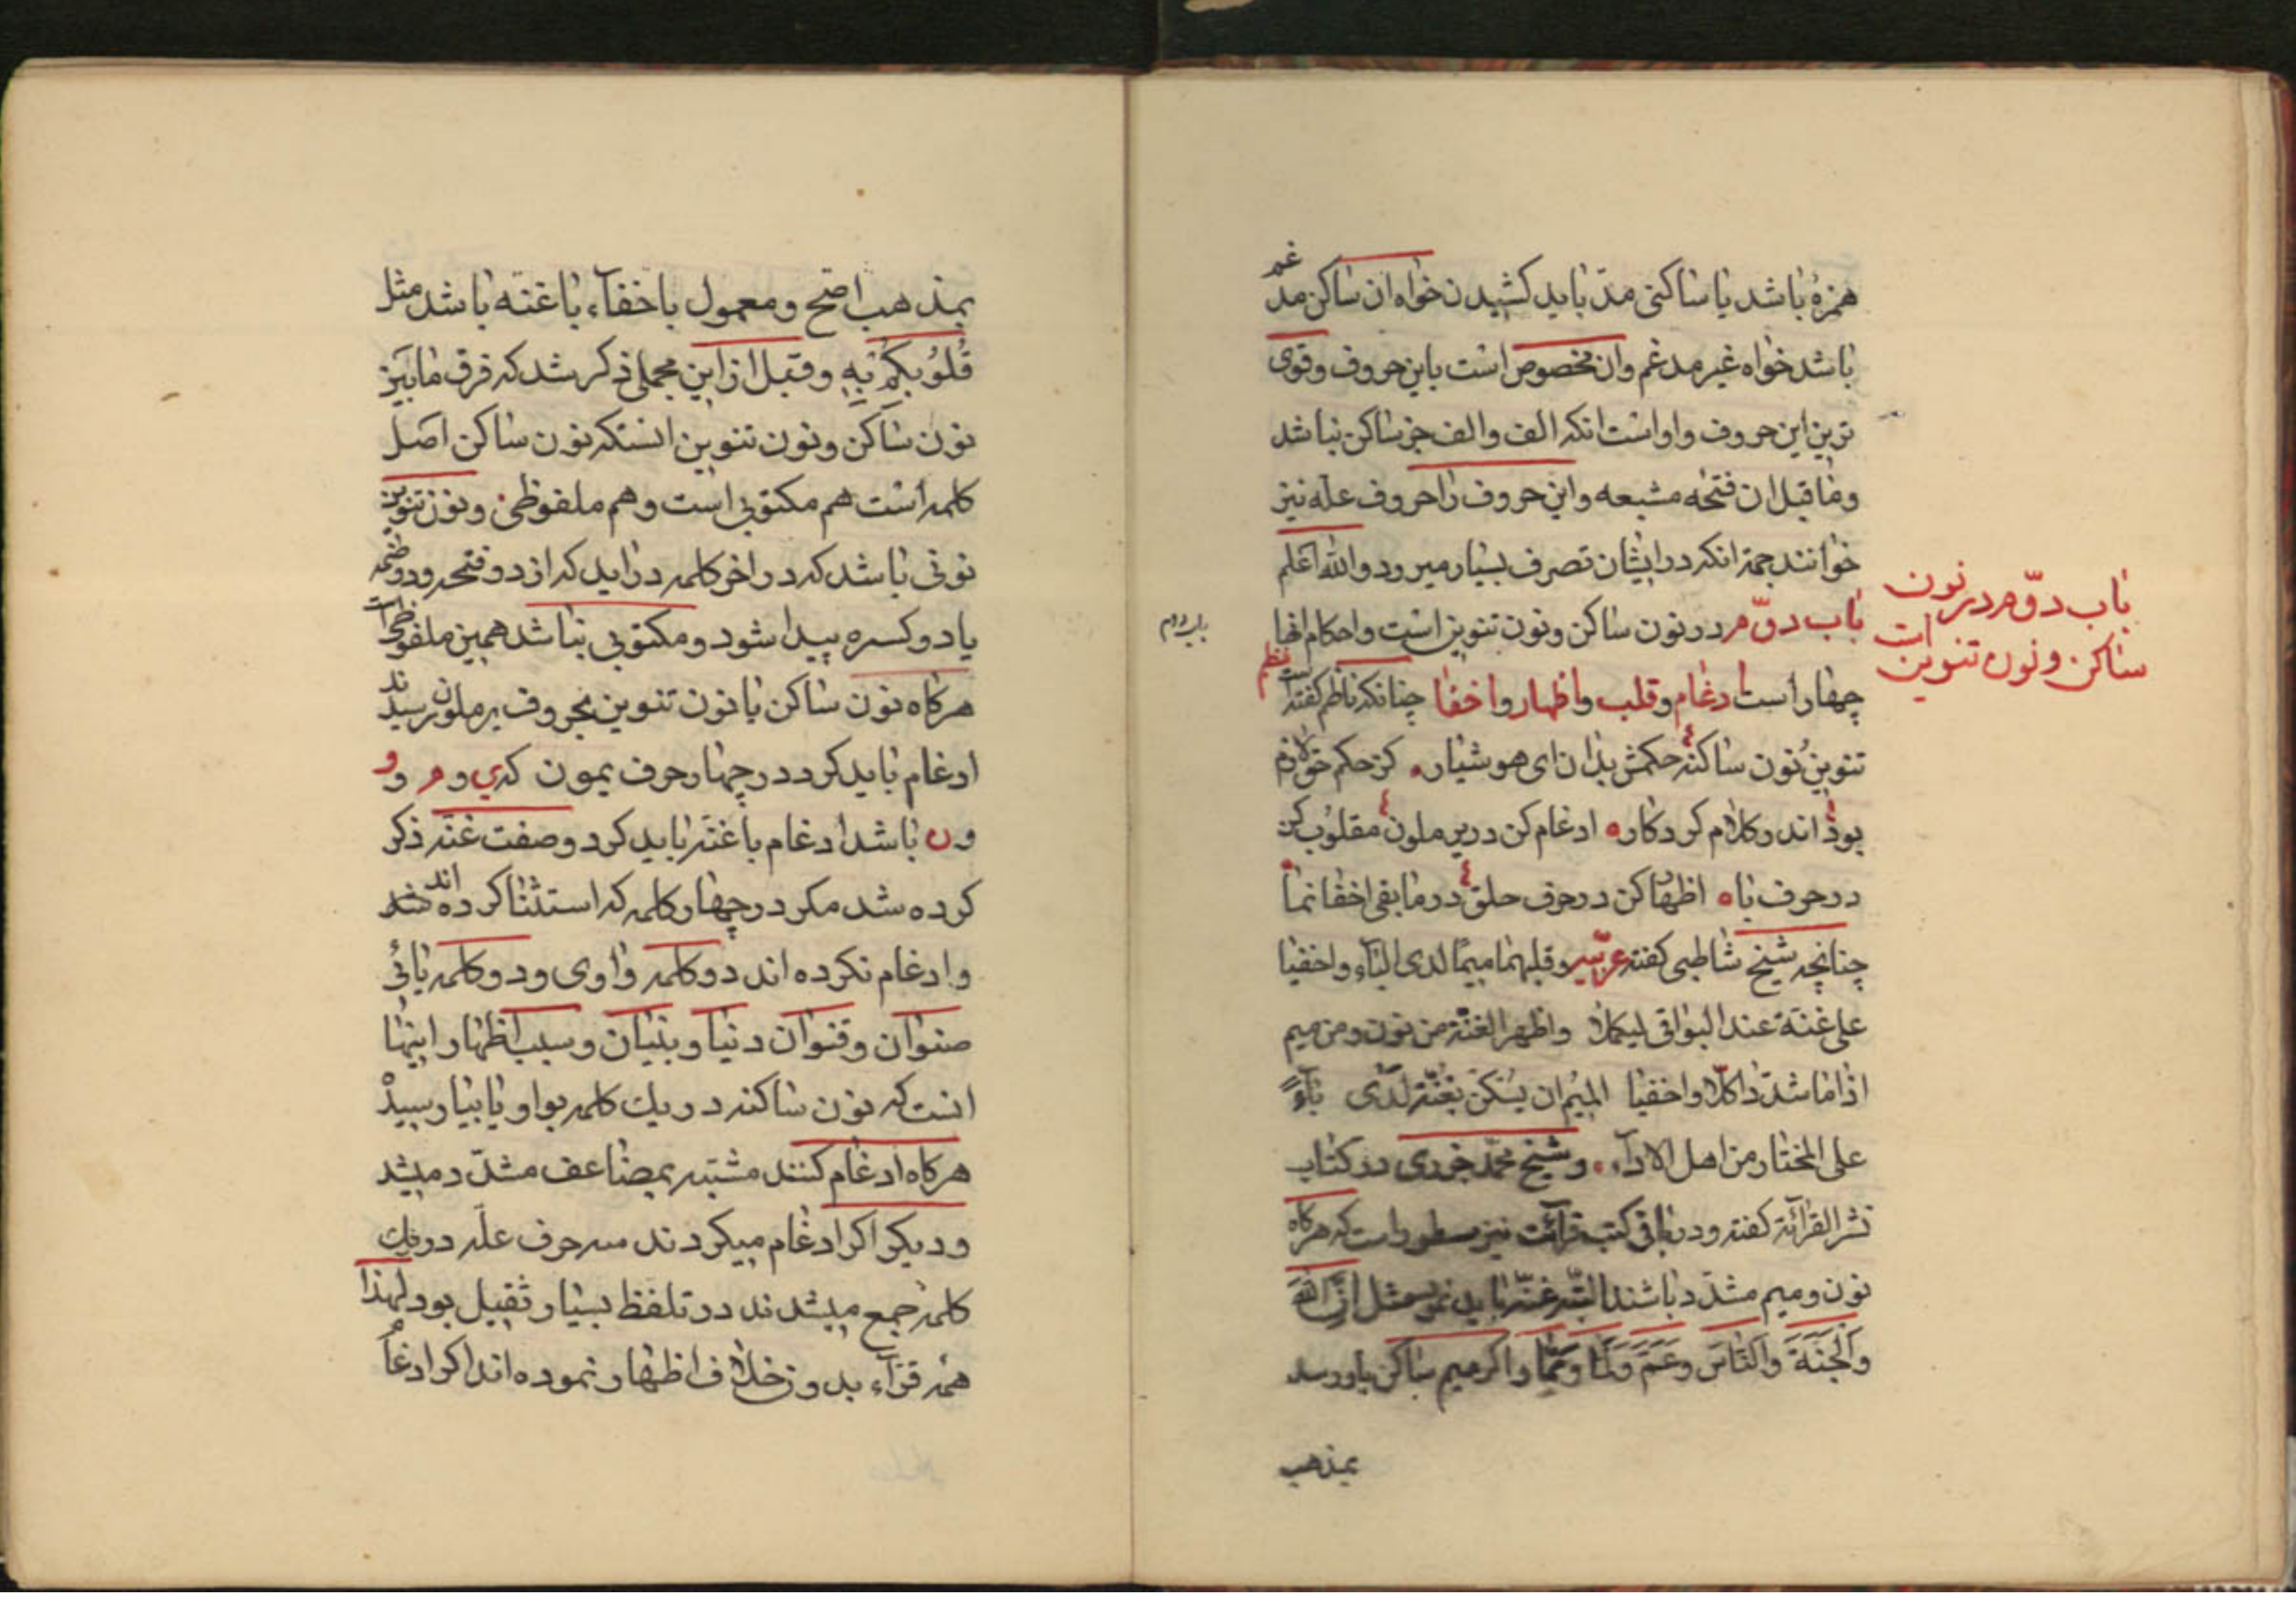 همزهٔ باشد یا ساکنی مدّ باید کشیدن خواه ان ساکن مدغم
باشد خواه غیر مدغم وان مخصوص است باین حروف وقوی
ترین این حروف واو است انکه الف والف جز ساکن نباشد
وما قبل ان فتحه مشبعه واین حروف را حروف علّه نیز
خوانند جهة انکه در ایشان تصرف بسیار میرود والله اعلم
باب دوّم در نون ساکن ونون تنوین است واحکام انها
باب دوّم در نون
ساکن ونون تنوین است
باب دوم
چهار است ادغام وقلب واظهار واخفا چنانکه ناظم کفته است نظم
تنوین نُون ساکنه حکمش بدان ای هوشیار کز حکم
بود اندر کلام کردکار ادغام کن در یرملون مقلوُب کن
در حرف با اظهار کن در حرف حلق در مابقی اخفا نما
چنانچه شیخ شاطبی کفته عربیه وقلبهما میمًا لدی البآء واخفیا
علی غنة عند البواقی لیکملا واظهر الغنّة من نون ومن میم
اذا ما شدّدا کلّا واخفیا المیُم ان یَسْکن بغُنّة لَدی بآءً
علی المختار من اهل الادآء وشیخ محمّد جزری در کتاب
نشر القرآئة کفته ودر باقی کتب قرآئت نیز مسطور است که هرکاه
نون ومیم مشدّد باشند البتّه غنّه باید نمود مثل انّ الله
والجَنَّةَ والنّاسَ وعَمَّ ولمّا وممّا واکر میم ساکن بباء رسد
بمذهب
بمذهب اصّح ومعمول باخفآء با غنّه باشد مثل
قُلوُبکُم بِه وقبل از این مجملی ذکر شد که فرق مابین
نون ساکن ونون تنوین انستکه نون ساکن اصل
کلمه است هم مکتوبی است وهم ملفوظی ونون تنوین
نونی باشد که در اخر کلمه در اید که از دو فتحه ودو ضمّه
یا دو کسره پیدا شود ومکتوبی نباشد همین ملفوظی است
هرکاه نون ساکن یا نون تنوین بحروف یرملون رسیدند
ادغام باید کرد در چهار حرف یمون که ی و م و و
و ن باشد ادغام با غنّه باید کرد وصفت غنّه ذکر
کرده شد مکر در چهار کلمه که استثنا کرده اند
وادغام نکرده اند دو کلمه واوی ودو کلمه یائی
صنوان وقنوان دنیا وبنیان وسبب اظهار اینها
انست که نون ساکنه در یك کلمه بواو یا بیا رسید
هرکاه ادغام کنند مشتبه بمضاعف مشدّد میشد
ودیکر اکر ادغام میکردند سه حرف علّه در یك
کلمه جمع میشدند در تلفظ بسیار ثقیل بود لهذا
همه قرّآء بدون خلاف اظهار نموده اند اکر ادغام